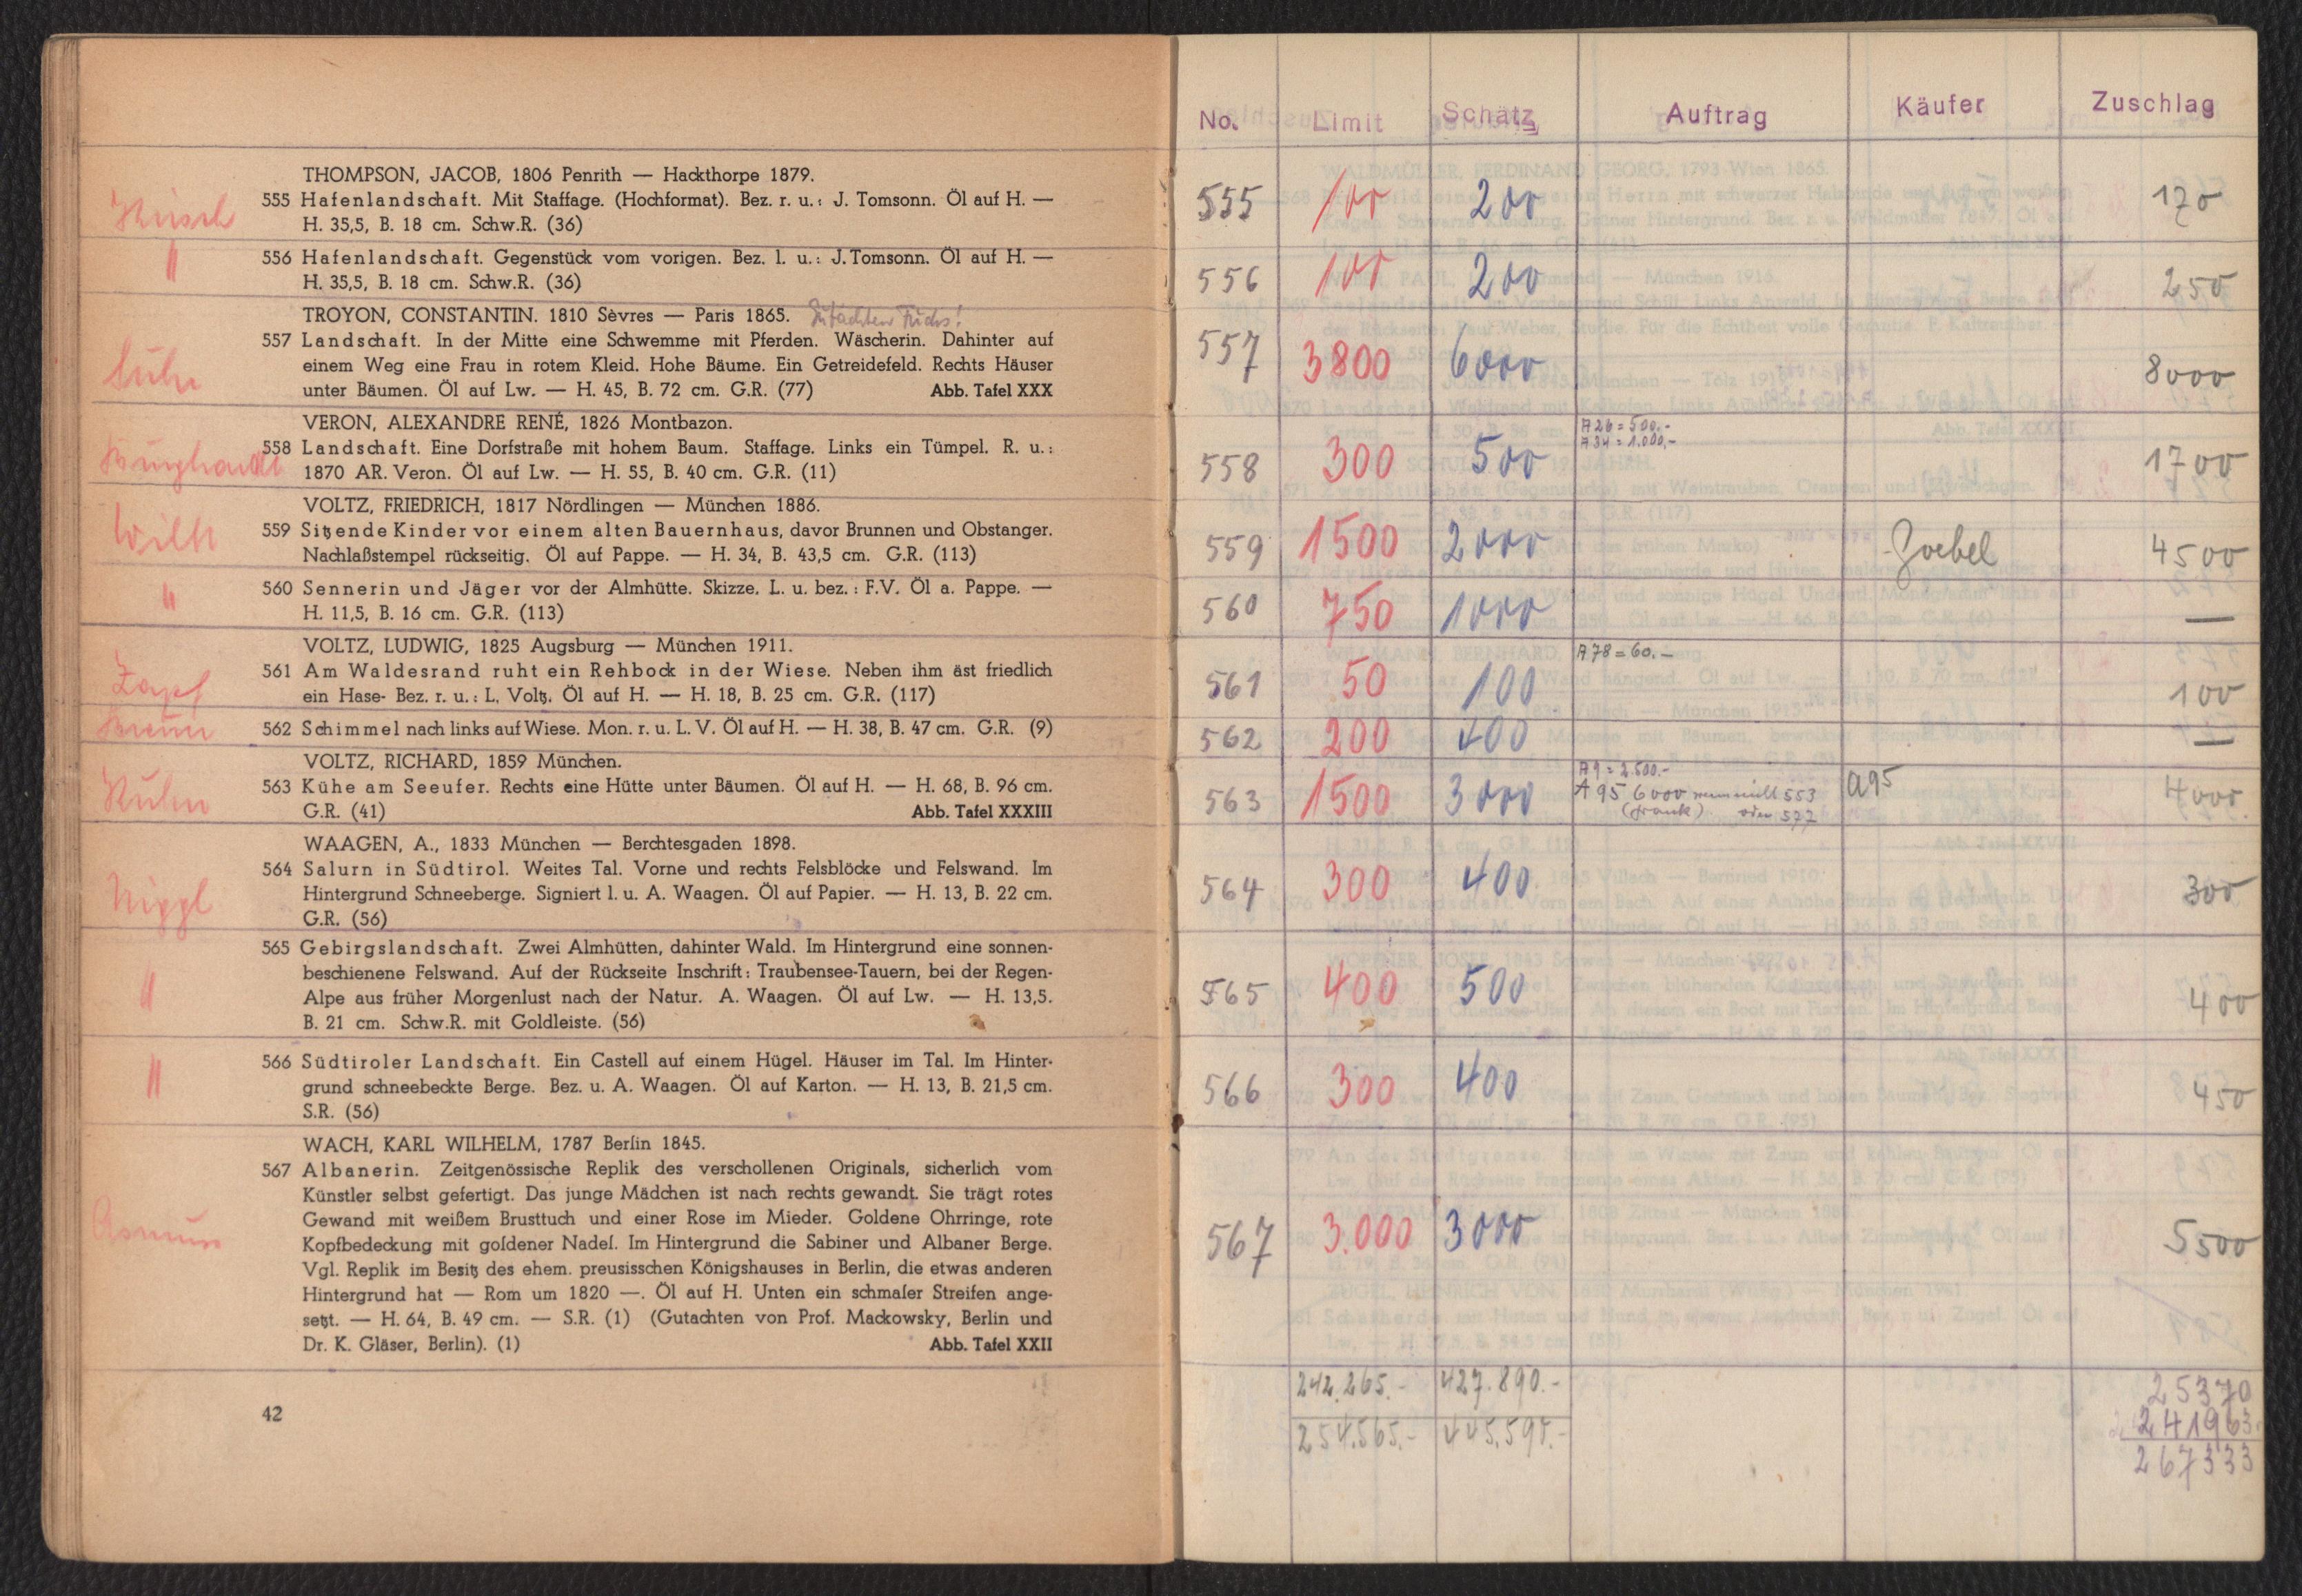 THOMPSON, JACOB, 1806 Penrith — Hackthorpe 1879.
555 Hafenlandschaft. Mit Staffage. (Hochformat). Bez. r. u.: J. Tomsonn. Öl auf H. —
H. 35,5, B. 18 cm. Schw.R. (36)
"
556 Hafenlandschaft. Gegenstück vom vorigen. Bez. l. u.: J. Tomsonn. Öl auf H. —
H. 35,5, B. 18 cm. Schw.R. (36)
TROYON, CONSTANTIN. 1810 Sèvres — Paris 1865. Gutachten Fuchs!
557 Landschaft. In der Mitte eine Schwemme mit Pferden. Wäscherin. Dahinter auf
einem Weg eine Frau in rotem Kleid. Hohe Bäume. Ein Getreidefeld. Rechts Häuser
unter Bäumen. Öl auf Lw. — H. 45, B. 72 cm. G.R. (77) Abb. Tafel XXX
VERON, ALEXANDRE RENÉ, 1826 Montbazon.
558 Landschaft. Eine Dorfstraße mit hohem Baum. Staffage. Links ein Tümpel. R. u.:
1870 AR. Veron. Öl auf Lw. — H. 55, B. 40 cm. G.R. (11)
VOLTZ, FRIEDRICH, 1817 Nördlingen — München 1886.
559 Sitzende Kinder vor einem alten Bauernhaus, davor Brunnen und Obstanger.
Nachlaßstempel rückseitig. Öl auf Pappe. — H. 34, B. 43,5 cm. G.R. (113)
"
560 Sennerin und Jäger vor der Almhütte. Skizze. L. u. bez.: F.V. Öl a. Pappe. —
H. 11,5, B. 16 cm. G.R. (113)
VOLTZ, LUDWIG, 1825 Augsburg — München 1911.
Zapf
561 Am Waldesrand ruht ein Rehbock in der Wiese. Neben ihm äst friedlich
ein Hase- Bez. r. u.: L. Voltz. Öl auf H. — H. 18, B. 25 cm. G.R. (117)
562 Schimmel nach links auf Wiese. Mon. r. u. L. V. Öl auf H. — H. 38, B. 47 cm. G.R. (9)
VOLTZ, RICHARD, 1859 München.
563 Kühe am Seeufer. Rechts eine Hütte unter Bäumen. Öl auf H. — H. 68, B. 96 cm.
G.R. (41) Abb. Tafel XXXIII
WAAGEN, A., 1833 München — Berchtesgaden 1898.
Niggl
564 Salurn in Südtirol. Weites Tal. Vorne und rechts Felsblöcke und Felswand. Im
Hintergrund Schneeberge. Signiert l. u. A. Waagen. Öl auf Papier. — H. 13, B. 22 cm.
G.R. (56)
"
565 Gebirgslandschaft. Zwei Almhütten, dahinter Wald. Im Hintergrund eine sonnen-
beschienene Felswand. Auf der Rückseite Inschrift: Traubensee-Tauern, bei der Regen-
Alpe aus früher Morgenlust nach der Natur. A. Waagen. Öl auf Lw. — H. 13,5.
B. 21 cm. Schw.R. mit Goldleiste. (56)
"
566 Südtiroler Landschaft. Ein Castell auf einem Hügel. Häuser im Tal. Im Hinter-
grund schneebeckte Berge. Bez. u. A. Waagen. Öl auf Karton. — H. 13, B. 21,5 cm.
S.R. (56)
WACH, KARL WILHELM, 1787 Berlin 1845.
Asmuss
567 Albanerin. Zeitgenössische Replik des verschollenen Originals, sicherlich vom
Künstler selbst gefertigt. Das junge Mädchen ist nach rechts gewandt. Sie trägt rotes
Gewand mit weißem Brusttuch und einer Rose im Mieder. Goldene Ohrringe, rote
Kopfbedeckung mit goldener Nadel. Im Hintergrund die Sabiner und Albaner Berge.
Vgl. Replik im Besitz des ehem. preusisschen Königshauses in Berlin, die etwas anderen
Hintergrund hat — Rom um 1820 —. Öl auf H. Unten ein schmaler Streifen ange-
setzt. — H. 64, B. 49 cm. — S.R. (1) (Gutachten von Prof. Mackowsky, Berlin und
Dr. K. Gläser, Berlin). (1) Abb. Tafel XXII
42
No. Limit Schätz Auftrag Käufer Zuschlag
555 100 200 170
556 100 200 250
557 3800 6000 8000
558 300 500 A26 = 500.- 1700
A34 = 1.000.-
559 1500 2000 Goebel 4500
560 750 1000 —
561 50 100 A78 = 60.- 100
562 200 400 —
563 1500 3000 A9 = 2.500.- A95 4000
A 95 6000 wenn nicht 553
(Frank) oder 577
564 300 400 300
565 400 500 400
566 300 400 450
567 3.000 3000 5500
242.265.- 427.890.- 25370
254.565.- 445.590.- 241963
267333